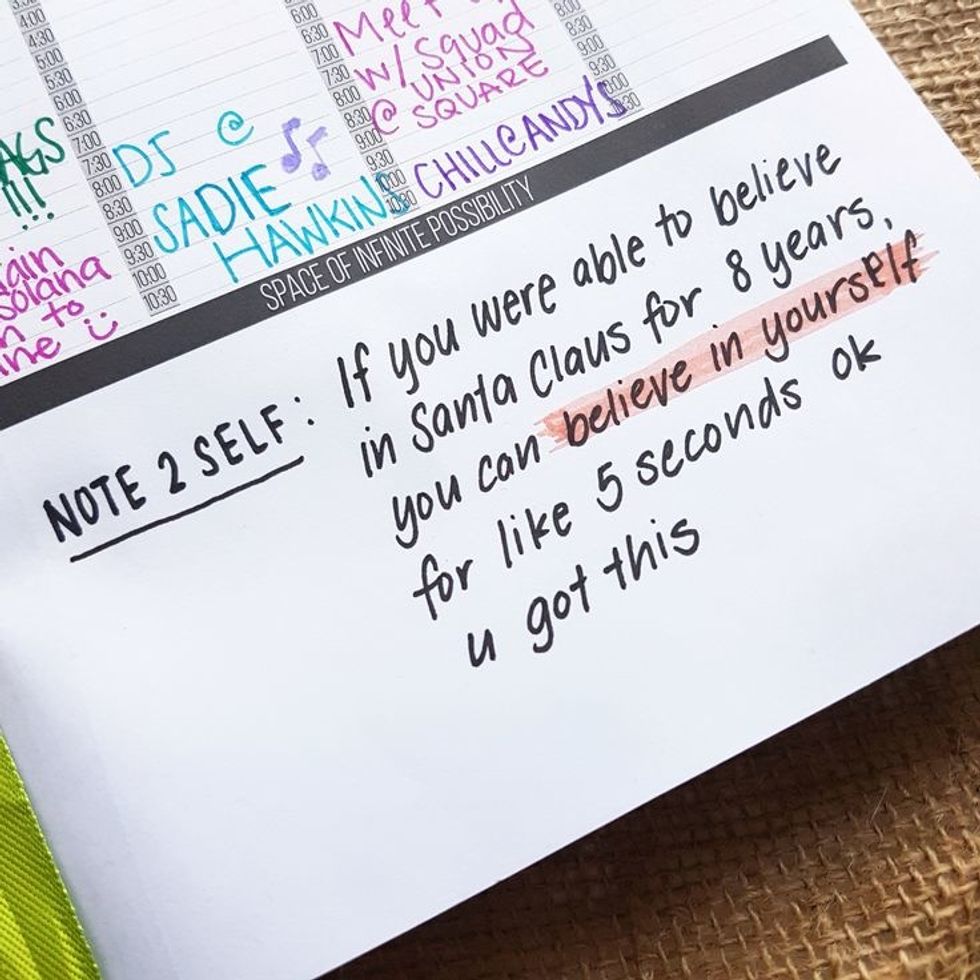 4:00
4:30
5:00
5:30
6:00
6:30
7:00
7:30
8:00
8:30
9:00
9:30
10:00
10:30
AGS
!!!
ain
solana
n to
ne
DJ @
SADIE
HAWKINS
6:00
6:30
7:00
7:30
8:00
8:30
9:00
9:30
Meet
w/ Squad
@ UNION
SQUARE
CHILLCANDYS
8:00
8:30
9:00
9:30
SPACE OF INFINITE POSSIBILITY
NOTE 2 SELF:
If you were able to believe
in Santa Claus for 8 years,
you can believe in yourself
for like 5 seconds ok
u got this